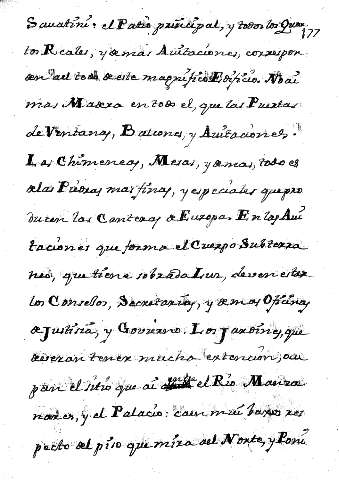 Savatini: el Patio prinçipal, y todos los Quar
177
tos Reales, y demas Avitaciones, correspon
den al todo de este magnifico Edificio. No ai
mas Madera en todo el, que las Puertas
de Ventanas, Balcones, y Avitaciones.
Las Chimeneas, Mesas, y demas, todo es
de las Piedras mas finas, y especiales que pro
ducen las Canteras de Europa. En las Avi
taciones que forma el Cuerpo Subterra
neo, que tiene sobrada Luz, deven estar
los Consejos, Secretarías, y demas Oficinas
de Justisia, y Govierno. Los Jardines, que
deveran tener mucha extencion, ocu
pan el sitio que ai entre el Rio Manza
nares, y el Palacio: caen mui baxos res
pecto del piso que mira del Norte, y Poni